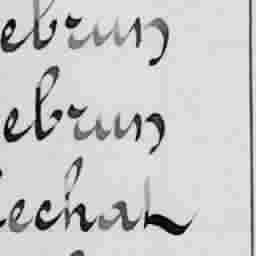 ebrun
ebrun
echal